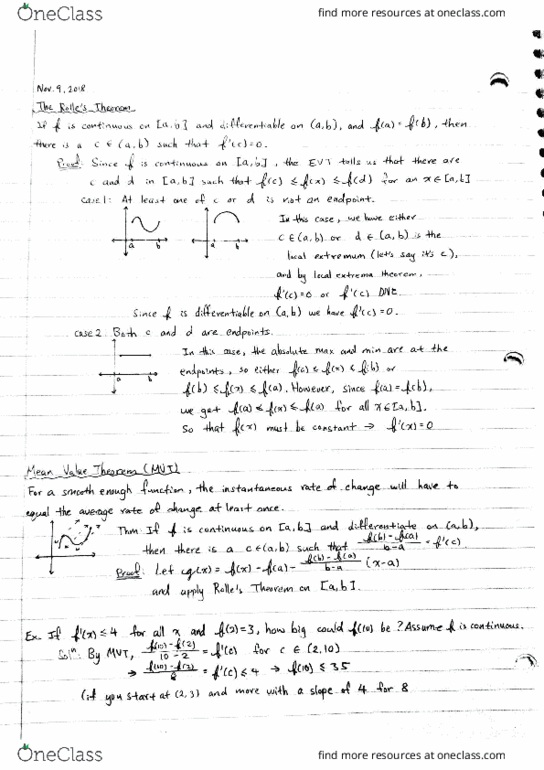 OneClass
find more resources at oneclass.com
Nov. 9, 2018
The Rolle's Theorem
If f is continuous on [a,b] and differentiable on (a,b), and f(a) = f(b), then
there is a c ∈ (a,b) such that f'(c)=0.
Proof: Since f is continuous on [a,b], the EVT tells us that there are
c and d in [a,b] such that f(c) ≤ f(x) ≤ f(d) for an x∈[a,b]
Case 1: At least one of c or d is not an endpoint.
a b
a b
In this case, we have either
c∈(a,b) or d∈(a,b) is the
local extremum (let's say it's c),
and by local extrema theorem,
f'(c)=0 or f'(c) DNE.
Since f is differentiable on (a,b) we have f'(c)=0.
Case 2: Both c and d are endpoints.
a b
In this case, the absolute max and min are at the
endpoints, so either f(a) ≤ f(x) ≤ f(b) or
f(b) ≤ f(x) ≤ f(a). However, since f(a)=f(b),
we get f(a) ≤ f(x) ≤ f(a) for all x∈[a,b].
So that f(x) must be constant → f'(x)=0
Mean Value Theorem (MVT)
For a smooth enough function, the instantaneous rate of change will have to
equal the average rate of change at least once.
Thm If f is continuous on [a,b] and differentiate on (a,b),
then there is a c∈(a,b) such that (f(b)-f(a))/(b-a) = f'(c)
Proof: Let g(x) = f(x) - f(a) - (f(b)-f(a))/(b-a) (x-a)
and apply Rolle's Theorem on [a,b].
Ex. If f'(x) ≤ 4 for all x and f(2)=3, how big could f(10) be? Assume f is continuous.
Solⁿ: By MVT, (f(10)-f(2))/(10-2) = f'(c) for c ∈ (2,10)
→ (f(10)-f(2))/8 = f'(c) ≤ 4 → f(10) ≤ 35
(if you start at (2,3) and move with a slope of 4 for 8
OneClass
find more resources at oneclass.com